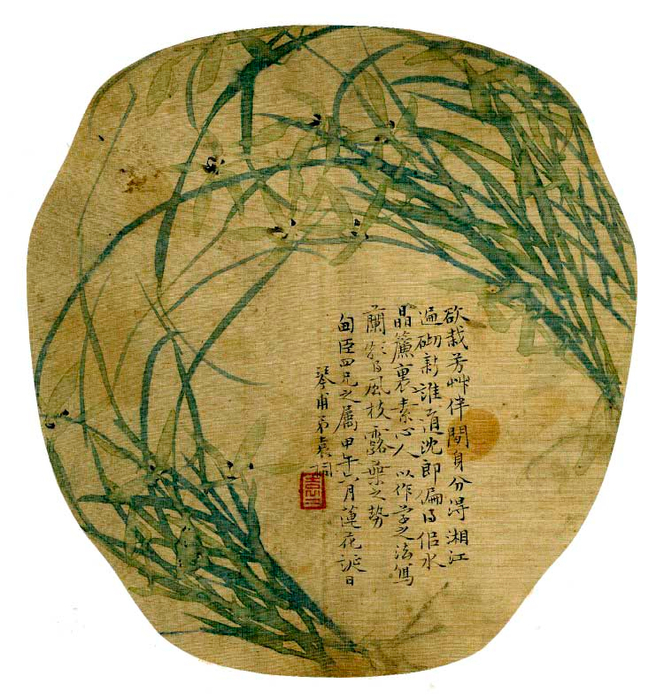 欲栽芳艸伴閒身分得湘江
遍砌新誰道沈郎偏旧侣水
晶簾裏素心人以作字之法寫
蘭 風枝露葉之勢
匋臣四兄之属甲午六月蓮花誕日
琴甫弟袁桐